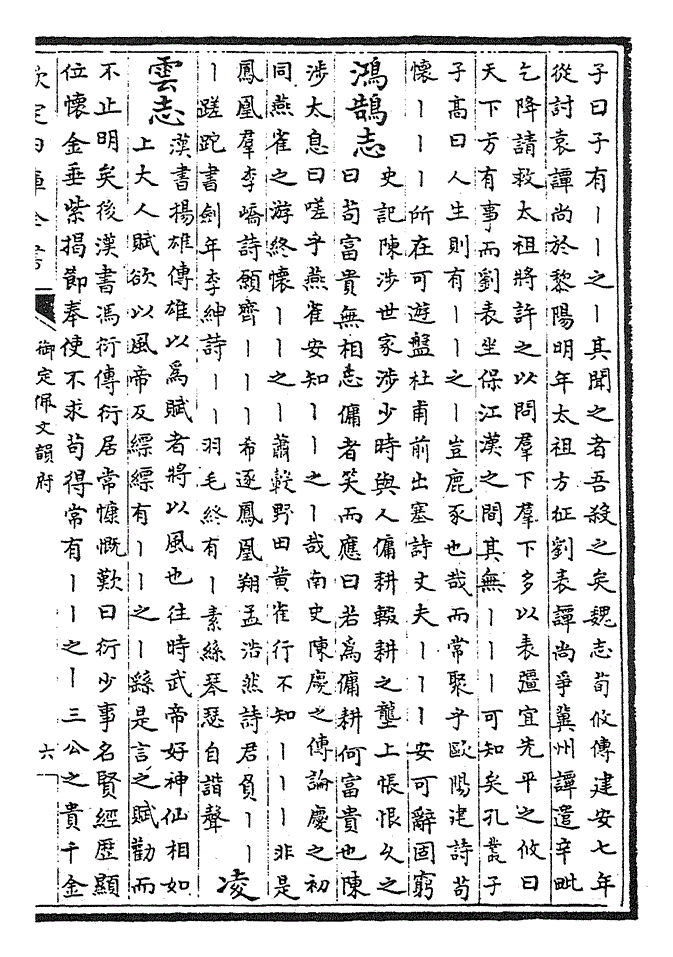 子曰子有丨丨之丨其聞之者吾殺之矣魏志荀攸傳建安七年
從討袁譚尚於黎陽明年太祖方征劉表譚尚爭冀州譚遣辛毗
乞降請救太祖將許之以問羣下羣下多以表彊宜先平之攸曰
天下方有事而劉表坐保江漢之間其無丨丨丨可知矣孔叢子
子高曰人生則有丨丨之丨豈鹿豕也哉而常聚乎歐陽建詩苟
懷丨丨丨所在可遊盤杜甫前出塞詩丈夫丨丨丨安可辭固窮
鴻鵠志
史記陳涉世家涉少時與人傭耕輟耕之壟上悵恨久之
曰苟富貴無相忘傭者笑而應曰若為傭耕何富貴也陳
涉太息曰嗟乎燕雀安知丨丨之丨哉南史陳慶之傳論慶之初
同燕雀之游終懷丨丨之丨蕭轂野田黄雀行不知丨丨丨非是
鳳凰羣李嶠詩願齊丨丨丨希逐鳳凰翔孟浩然詩君負丨丨
丨蹉跎書劍年李紳詩丨丨羽毛終有丨素絲琴瑟自諧聲
凌
雲志
漢書揚雄傳雄以為賦者將以風也往時武帝好神仙相如
上大人賦欲以風帝反縹縹有丨丨之丨繇是言之賦勸而
不止明矣後漢書馮衍傳衍居常慷慨歎曰衍少事名賢經歷顯
位懷金垂紫揭節奉使不求苟得常有丨丨之丨三公之貴千金
欽定四庫全書
御定佩文韻府
六